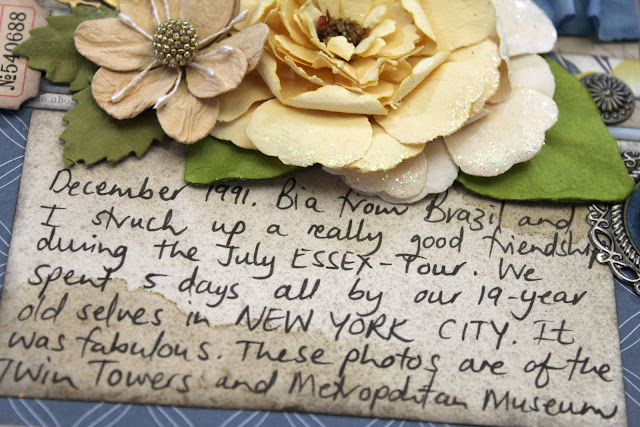 №540688
December 1991. Bia from Brazil and
I struck up a really good friendship
during the July ESSEX-Tour. We
spent 5 days all by our 19-year
old selves in NEW YORK CITY. It
was fabulous. These photos are of the
Twin Towers and Metropolitan Museum